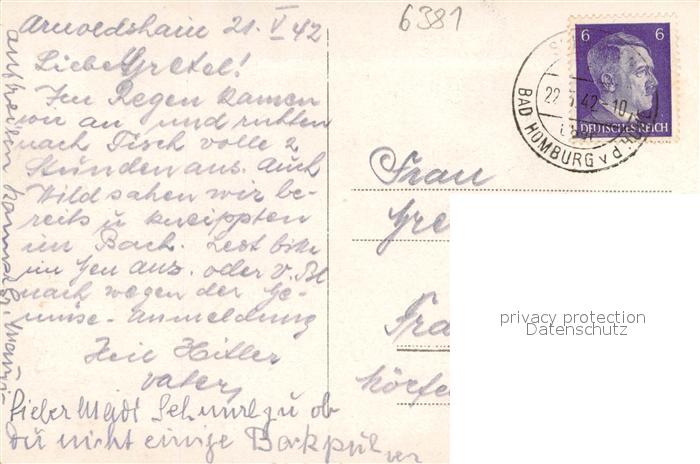 Arnoldshain 21. V 42
Liebe Gretel!
Im Regen kamen
wir an und ruhten
nach Tisch volle 2
Stunden aus. Auch
Wild sahen wir be-
reits u kneippten
im Bach. Lest bitte
im Gen aus. oder V. Bl
nach wegen der Ge-
müse-Anmeldung
Heil Hitler
Vater
Lieber Schnurl zu ob
Du nicht einige Backpulver
6381
6 6
DEUTSCHES REICH
22. 42-10
BAD HOMBURG v.d.
Frau
Gre
Fra
privacy protection
Datenschutz